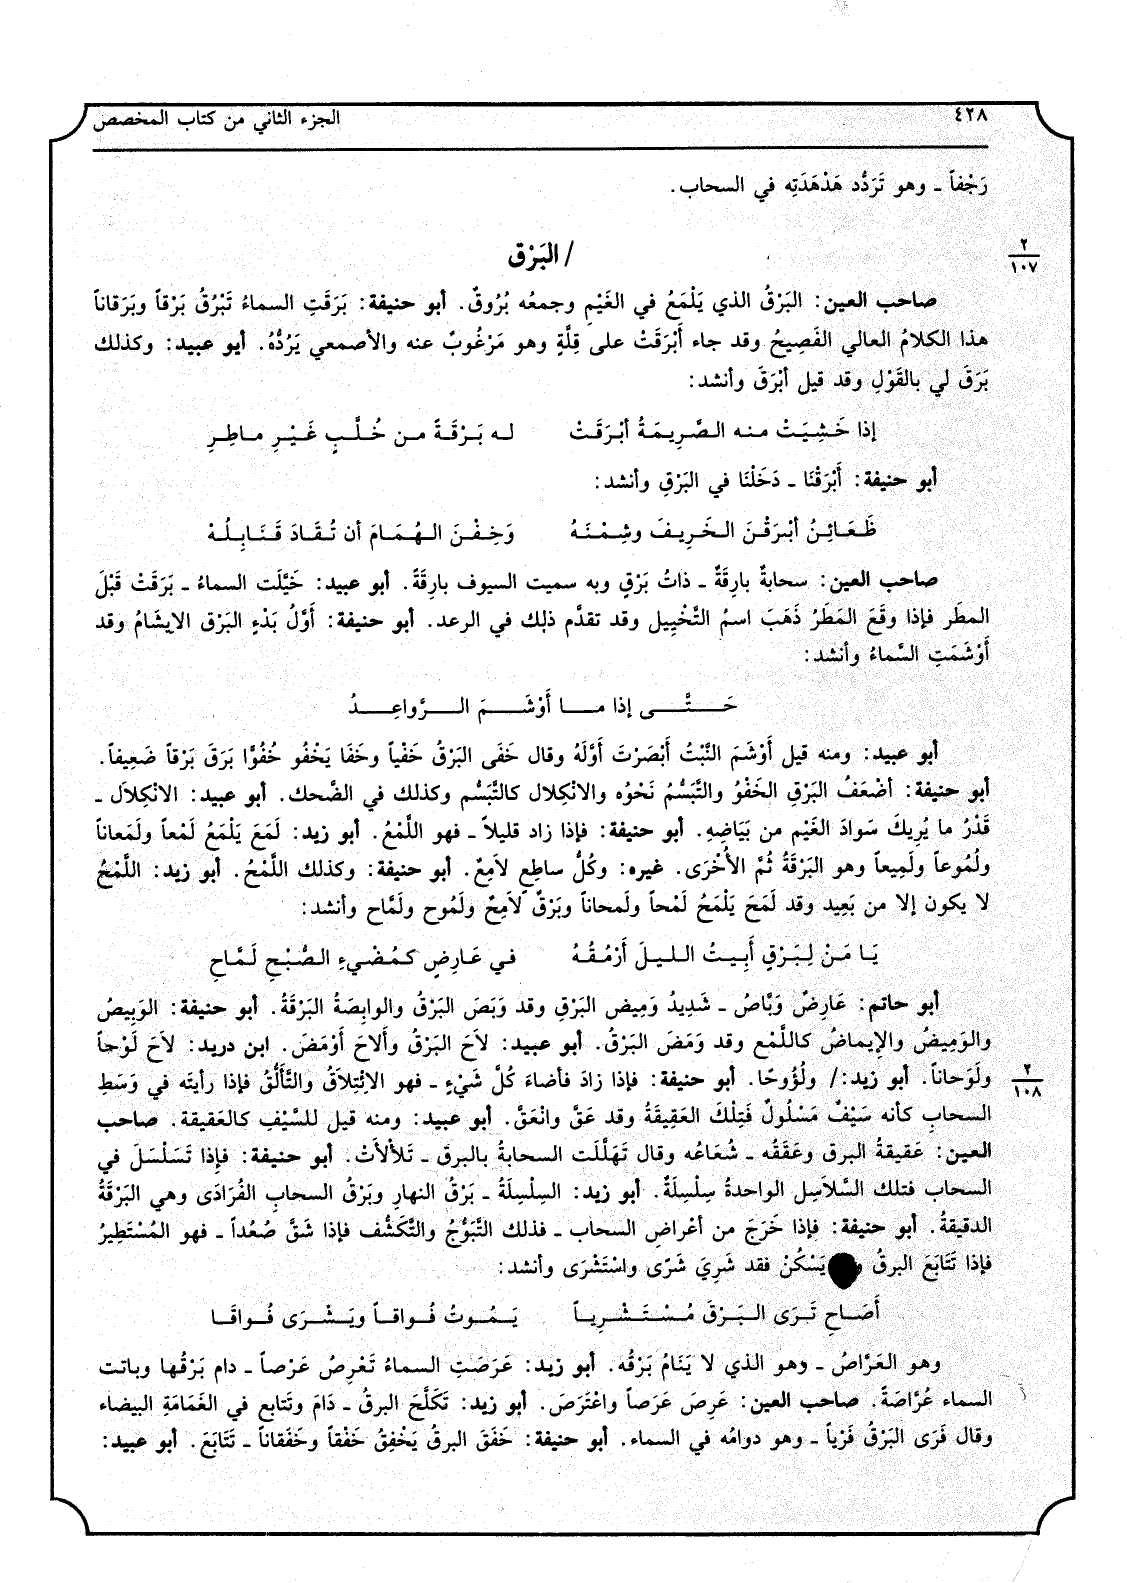 ٤٢٨ الجزء الثاني من كتاب المخصص
رَجْفاً ـ وهو تَرَدُّد هَدْهَدَتِه في السحاب.
٢
١٠٧
/ البَرْق
صاحب العين: البَرْقُ الذي يَلْمَعُ في الغَيْمِ وجمعُه بُرُوقٌ. أبو حنيفة: بَرَقَتِ السماءُ تَبْرُقُ بَرْقاً وبَرَقاناً
هذا الكلامُ العالي الفَصِيحُ وقد جاء أَبْرَقَتْ على قِلَّةٍ وهو مَرْغُوبٌ عنه والأصمعي يَرُدُّهُ. أبو عبيد: وكذلك
بَرَقَ لي بالقَوْلِ وقد قيل أبْرَقَ وأنشد:
إذا خَشِيَتْ منه الصَّرِيمَةُ أبْرَقَتْ له بَرْقَةً من خُلَّبٍ غَيْرِ ماطِرِ
أبو حنيفة: أَبْرَقْنَا ـ دَخَلْنَا في البَرْقِ وأنشد:
ظَعَائِنُ أبْرَقْنَ الخَرِيفَ وشِمْنَهُ وَخِفْنَ الهُمَامَ أن تُقَادَ قَنَابِلُهْ
صاحب العين: سحابةٌ بارِقَةٌ ـ ذاتُ بَرْقٍ وبه سميت السيوف بارِقَةً. أبو عبيد: خَيَّلَت السماءُ ـ بَرَقَتْ قَبْلَ
المطَر فإذا وقَعَ المَطَرُ ذَهَبَ اسمُ التَّخْيِيل وقد تقدَّم ذلك في الرعد. أبو حنيفة: أَوَّلُ بَدْءِ البَرْق الإيشَامُ وقد
أَوْشَمَتِ السَّماءُ وأنشد:
حَتَّى إذا ما أَوْشَمَ الرَّواعِدُ
أبو عبيد: ومنه قيل أَوْشَمَ النَّبْتُ أَبْصَرْتَ أَوَّلَهُ وقال خَفَى البَرْقُ خَفْياً وخَفَا يَخْفُو خُفُوًّا بَرَقَ بَرْقاً ضَعِيفاً.
أبو حنيفة: أضْعَفُ البَرْقِ الخَفْوُ والتَّبَسُّمُ نَحْوُه والانْكِلال كالتَّبَسُّم وكذلك في الضَّحك. أبو عبيد: الانْكِلاَل ـ
قَدْرُ ما يُرِيكَ سَوادَ الغَيْم من بَيَاضِهِ. أبو حنيفة: فإذا زاد قليلاً ـ فهو اللَّمْعُ. أبو زيد: لَمَعَ يَلْمَعُ لَمْعاً ولَمَعاناً
ولُمُوعاً ولَمِيعاً وهو البَرْقَةُ ثُمَّ الأُخْرَى. غيره: وكُلُّ ساطِعٍ لاَمِعٌ. أبو حنيفة: وكذلك اللَّمْحُ. أبو زيد: اللَّمْحُ
لا يكون إلا من بَعِيد وقد لَمَحَ يَلْمَحُ لَمْحاً ولَمحاناً وبَرْقٌ لاَمِحٌ ولَمُوح ولَمَّاح وأنشد:
يَا مَنْ لِبَرْقٍ أَبِيتُ الليلَ أَرْمُقُهُ في عَارِضٍ كمُضْيءِ الصُّبْحِ لَمَّاحِ
أبو حاتم: عَارِضٌ وَبَّاصٌ ـ شَدِيدُ وَمِيض البَرْقِ وقد وَبَصَ البَرْقُ والوابِصَةُ البَرْقَةُ. أبو حنيفة: الوَبِيصُ
والوَمِيضُ والإيماضُ كاللَّمْع وقد وَمَضَ البَرْقُ. أبو عبيد: لاَحَ البَرْقُ وأَلاحَ أَوْمَضَ. ابن دريد: لاَحَ لَوْحاً
ولَوَحاناً. أبو زيد:/ ولُؤُوحًا. أبو حنيفة: فإذا زادَ فأضاءَ كُلَّ شَيْءٍ ـ فهو الائْتِلاَقُ والتَّأَلُّقُ فإذا رأيتَه في وَسَطِ
٢
١٠٨
السحابِ كأنه سَيْفٌ مَسْلُولٌ فَتِلْكَ العَقِيقَةُ وقد عَقَّ وانْعَقَّ. أبو عبيد: ومنه قيل للسَّيْفِ كالعَقيقة. صاحب
العين: عَقيقةُ البرق وعَقَقُه ـ شُعَاعُه وقال تَهَلَّلَت السحابةُ بالبرق ـ تَلأْلأَتْ. أبو حنيفة: فإذا تَسَلْسَلَ في
السحاب فتلك السَّلاَسِل الواحدةُ سِلْسِلَةٌ. أبو زيد: السِلْسِلَةُ ـ بَرْقُ النهارِ وبَرْقُ السحابِ الفُرَادَى وهي البَرْقَةُ
الدقيقةُ. أبو حنيفة: فإذا خَرَجَ من أعْراضِ السحاب ـ فذلك التَّبَوُّجُ والتَّكَشُّف فإذا شَقَّ صُعُداً ـ فهو المُسْتَطِيرُ
فإذا تَتَابَعَ البرقُ يَسْكُنْ فقد شَرِيَ شَرًى واسْتَشْرَى وأنشد:
أَصَاحِ تَرَى البَرْقَ مُسْتَشْرِياً يَمُوتُ فُواقاً ويَشْرَى فُواقَا
وهو العَرَّاصُ ـ وهو الذي لا يَنَامُ بَرْقُه. أبو زيد: عَرَصَتِ السماءُ تَعْرِصُ عَرْصاً ـ دام بَرْقُها وباتت
السماء عُرَّاصَةً. صاحب العين: عَرِصَ عَرَصاً واعْتَرَصَ. أبو زيد: تَكَلَّحَ البرقُ ـ دَامَ وتَتابع في الغَمَامَةِ البيضاء
وقال فَرَى البَرْقُ فَرْياً ـ وهو دوامُه في السماء. أبو حنيفة: خَفَقَ البرقُ يَخْفِقُ خَفْقاً وخَفَقاناً ـ تَتَابَعَ. أبو عبيد: